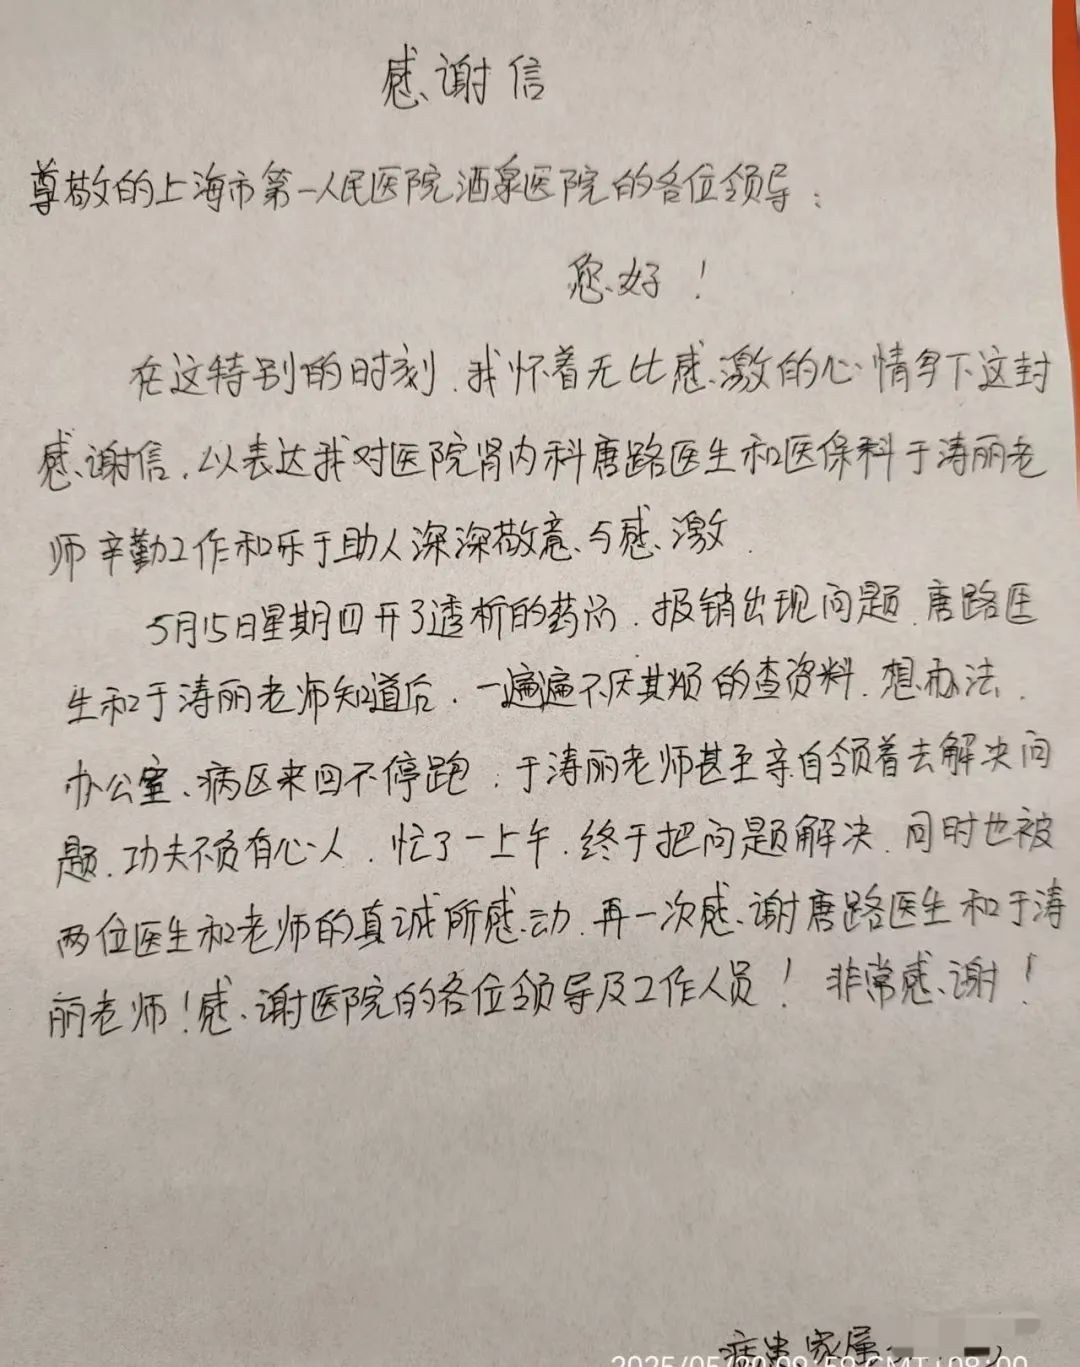 感谢信
尊敬的上海市第一人民医院酒泉医院的各位领导：
您好！
在这特别的时刻，我怀着无比感激的心情写下这封
感谢信，以表达我对医院肾内科唐路医生和医保科于涛丽老
师辛勤工作和乐于助人深深敬意与感激．
5月15日星期四开了透析的药泻，报销出现问题，唐路医
生和于涛丽老师知道后，一遍遍不厌其烦的查资料，想办法，
办公室、病区来回不停跑，于涛丽老师甚至亲自领着去解决问
题，功夫不负有心人，忙了一上午，终于把问题解决，同时也被
两位医生和老师的真诚所感动，再一次感谢唐路医生和于涛
丽老师！感谢医院的各位领导及工作人员！非常感谢！
病患家属：